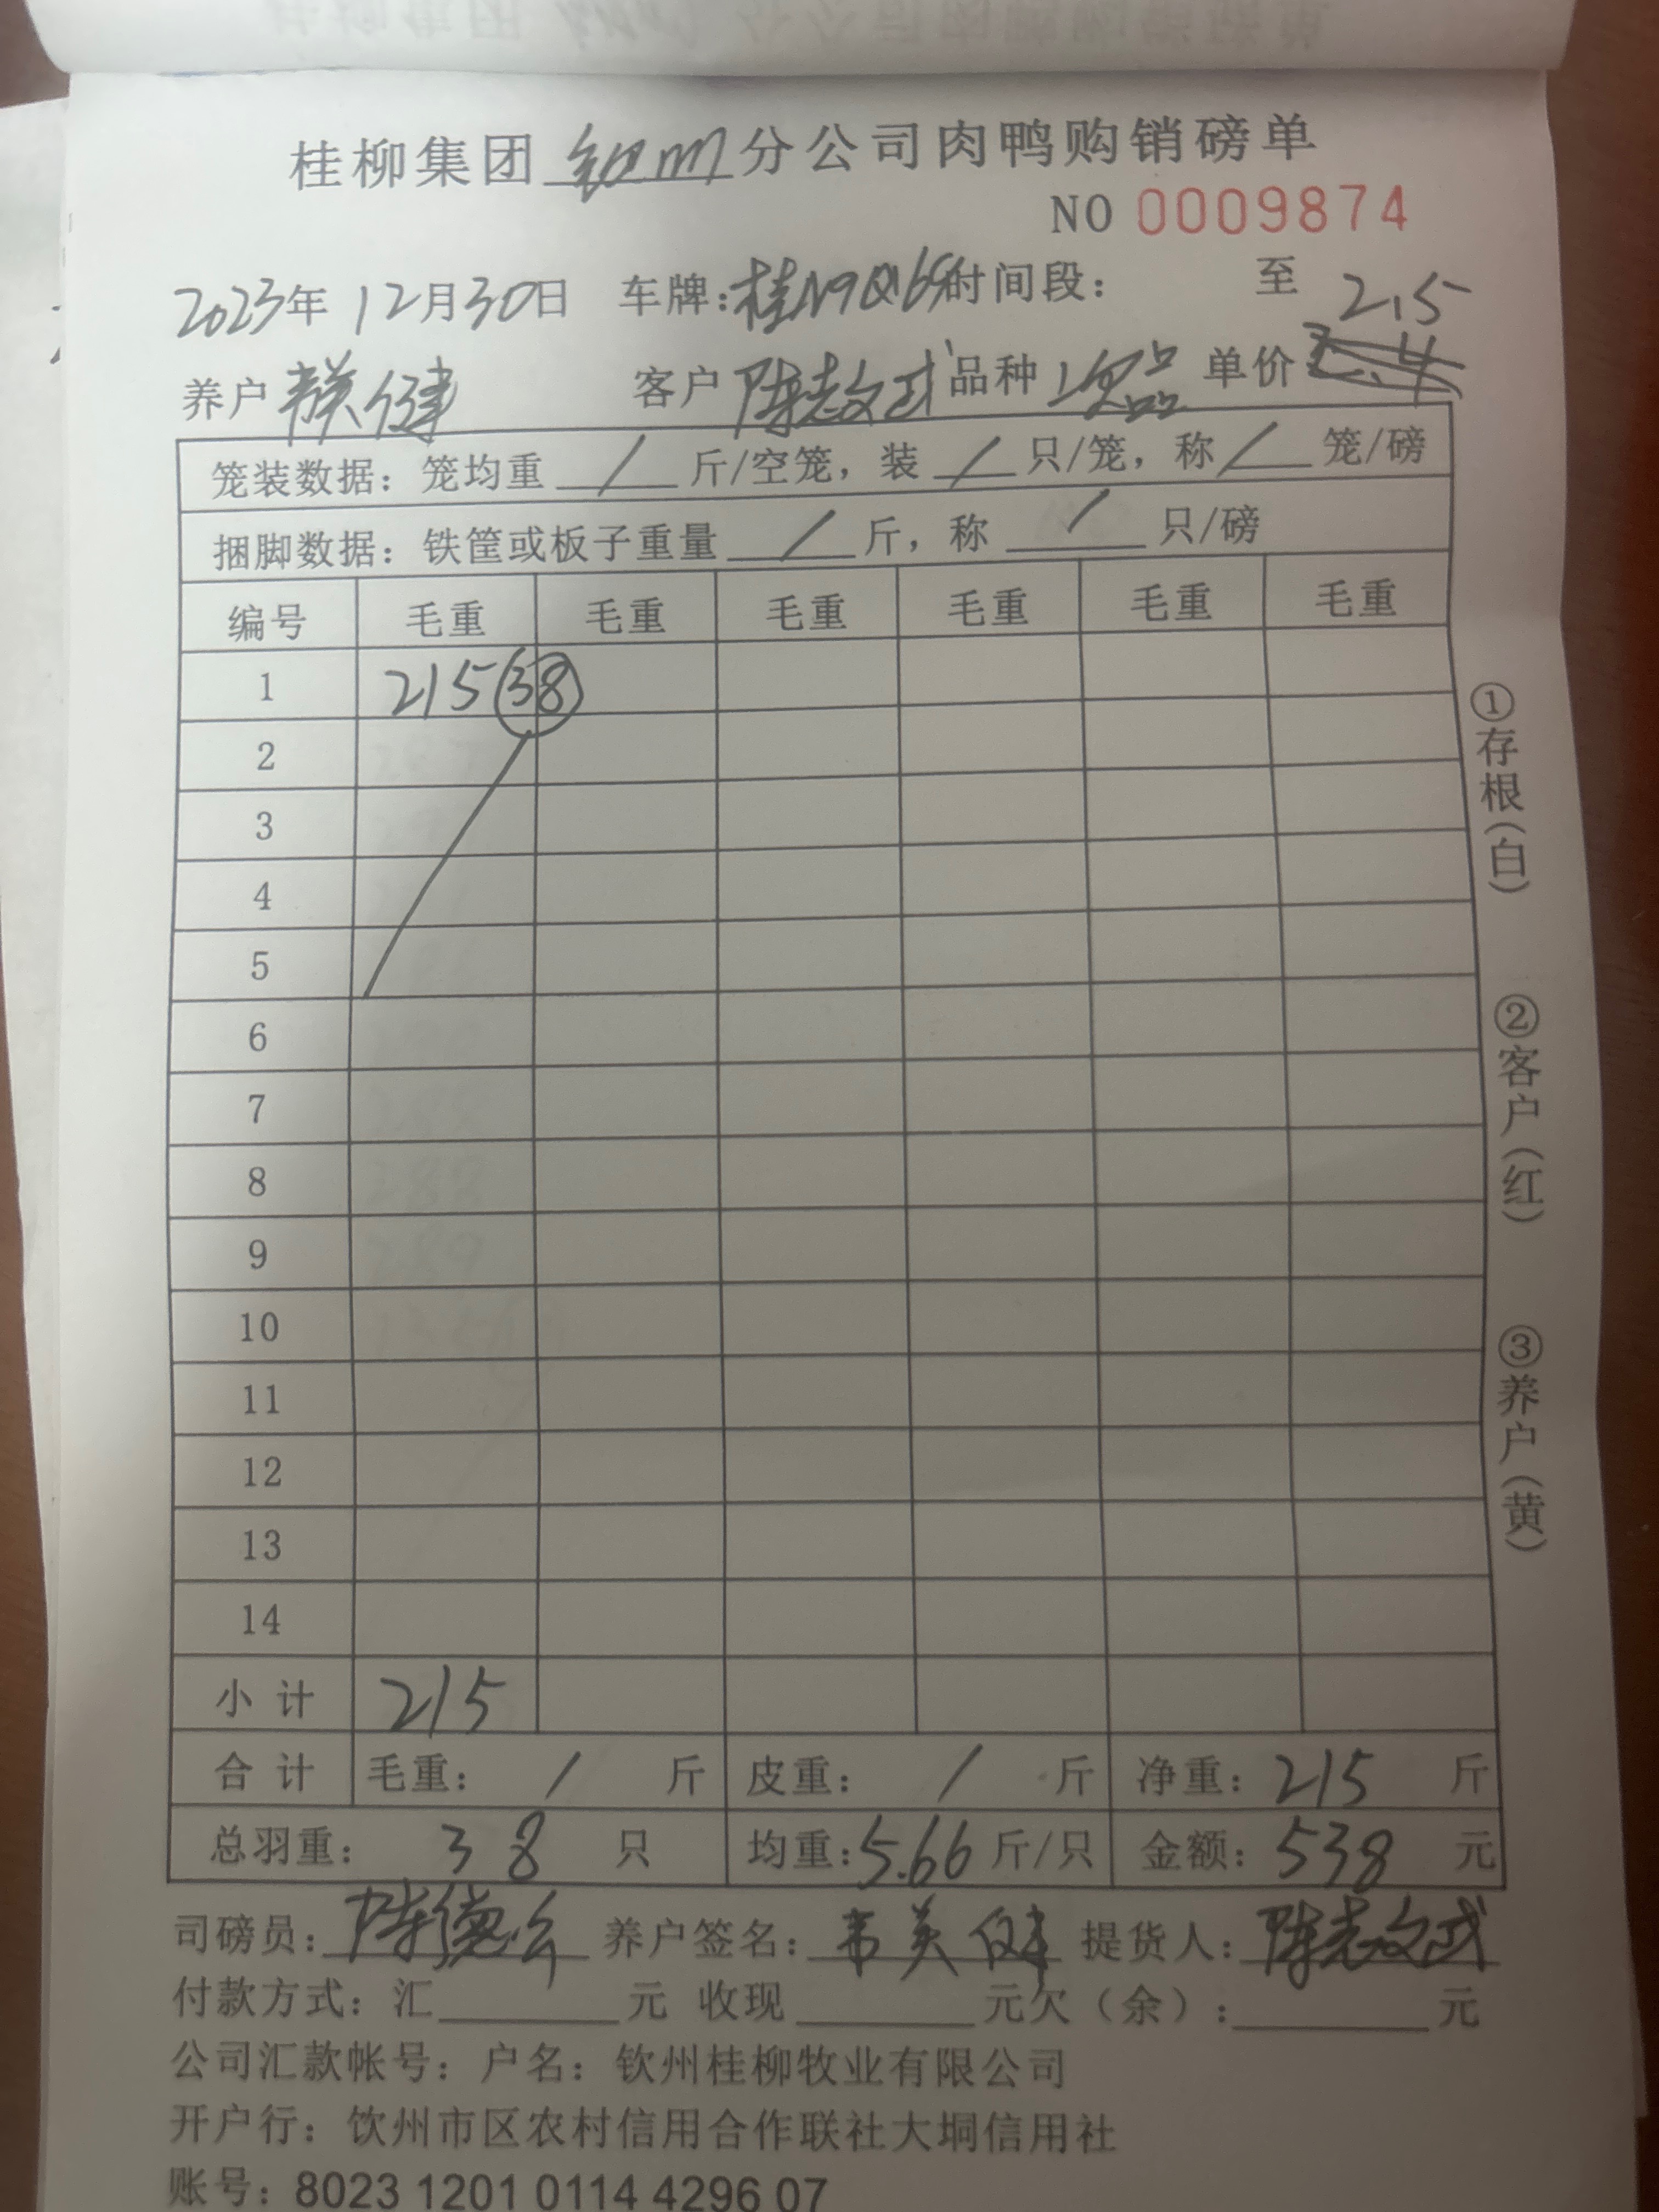 桂柳集团 钦州 分公司肉鸭购销磅单
NO 0009874
2023年 12月30日 车牌: 时间段: 至
2.5
养户 韦英健 客户 陈志文武 品种 次品 单价
笼装数据: 笼均重 / 斤/空笼, 装 / 只/笼, 称 / 笼/磅
捆脚数据: 铁筐或板子重量 / 斤, 称 / 只/磅
编号 毛重 毛重 毛重 毛重 毛重 毛重
1 215 38
2
3
4
5
6
7
8
9
10
11
12
13
14
小计 215
合计 毛重: / 斤 皮重: / 斤 净重: 215 斤
总羽重: 38 只 均重: 5.66 斤/只 金额: 538 元
司磅员: 养户签名: 韦英健 提货人:
付款方式: 汇 元 收现 元 欠(余): 元
公司汇款帐号: 户名: 钦州桂柳牧业有限公司
开户行: 钦州市区农村信用合作联社大垌信用社
账号: 8023 1201 0114 4296 07
①存根(白)
②客户(红)
③养户(黄)